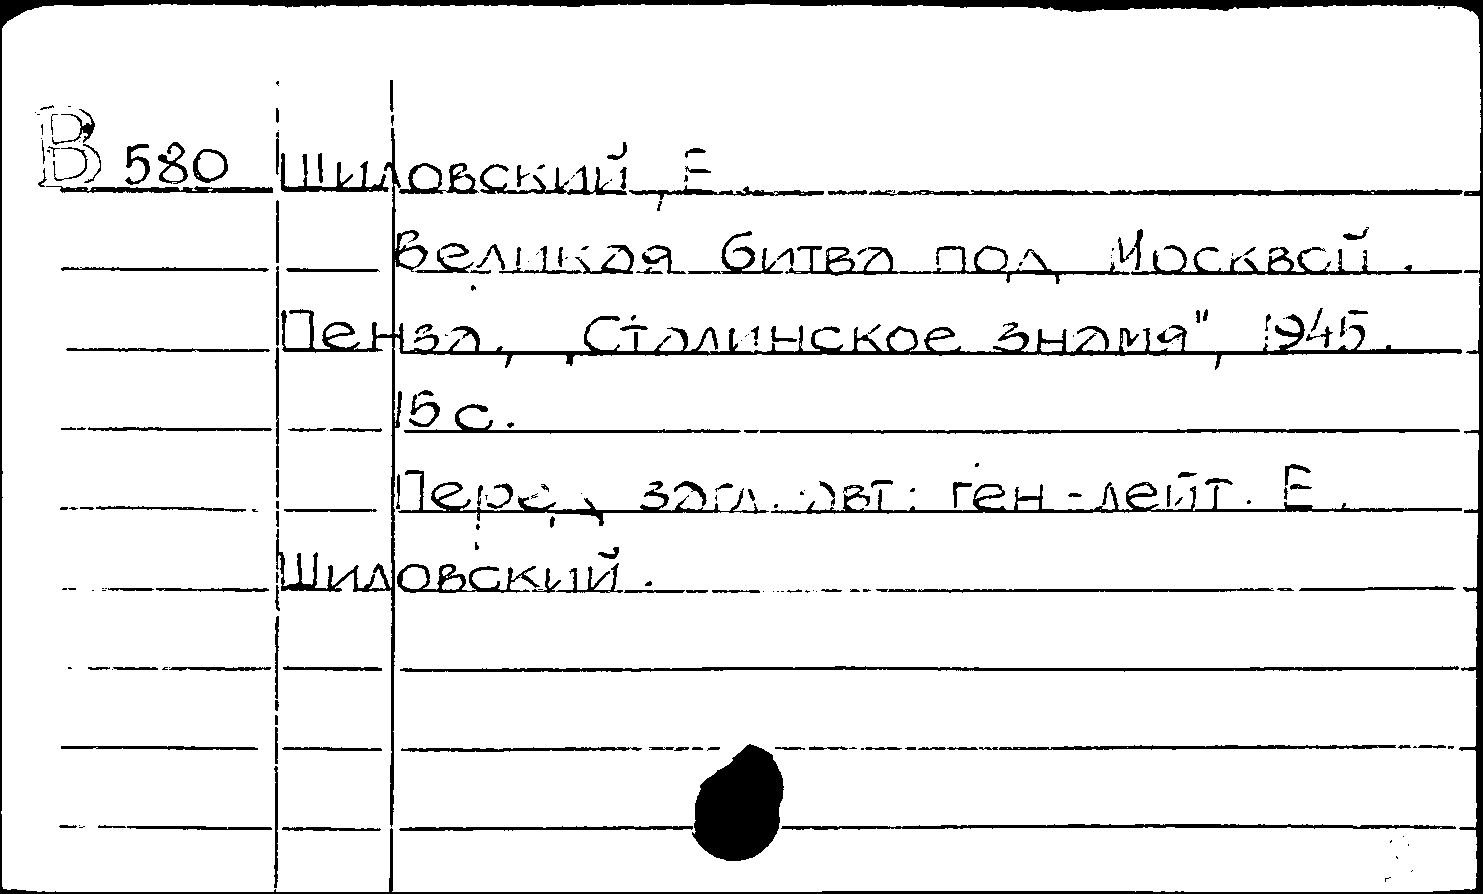 В 580 Шиловский, Е.
Великая битва под Москвой.
Пенза, „Сталинское знамя", 1945.
15 с.
Перед загл. авт: ген-лейт. Е.
Шиловский.